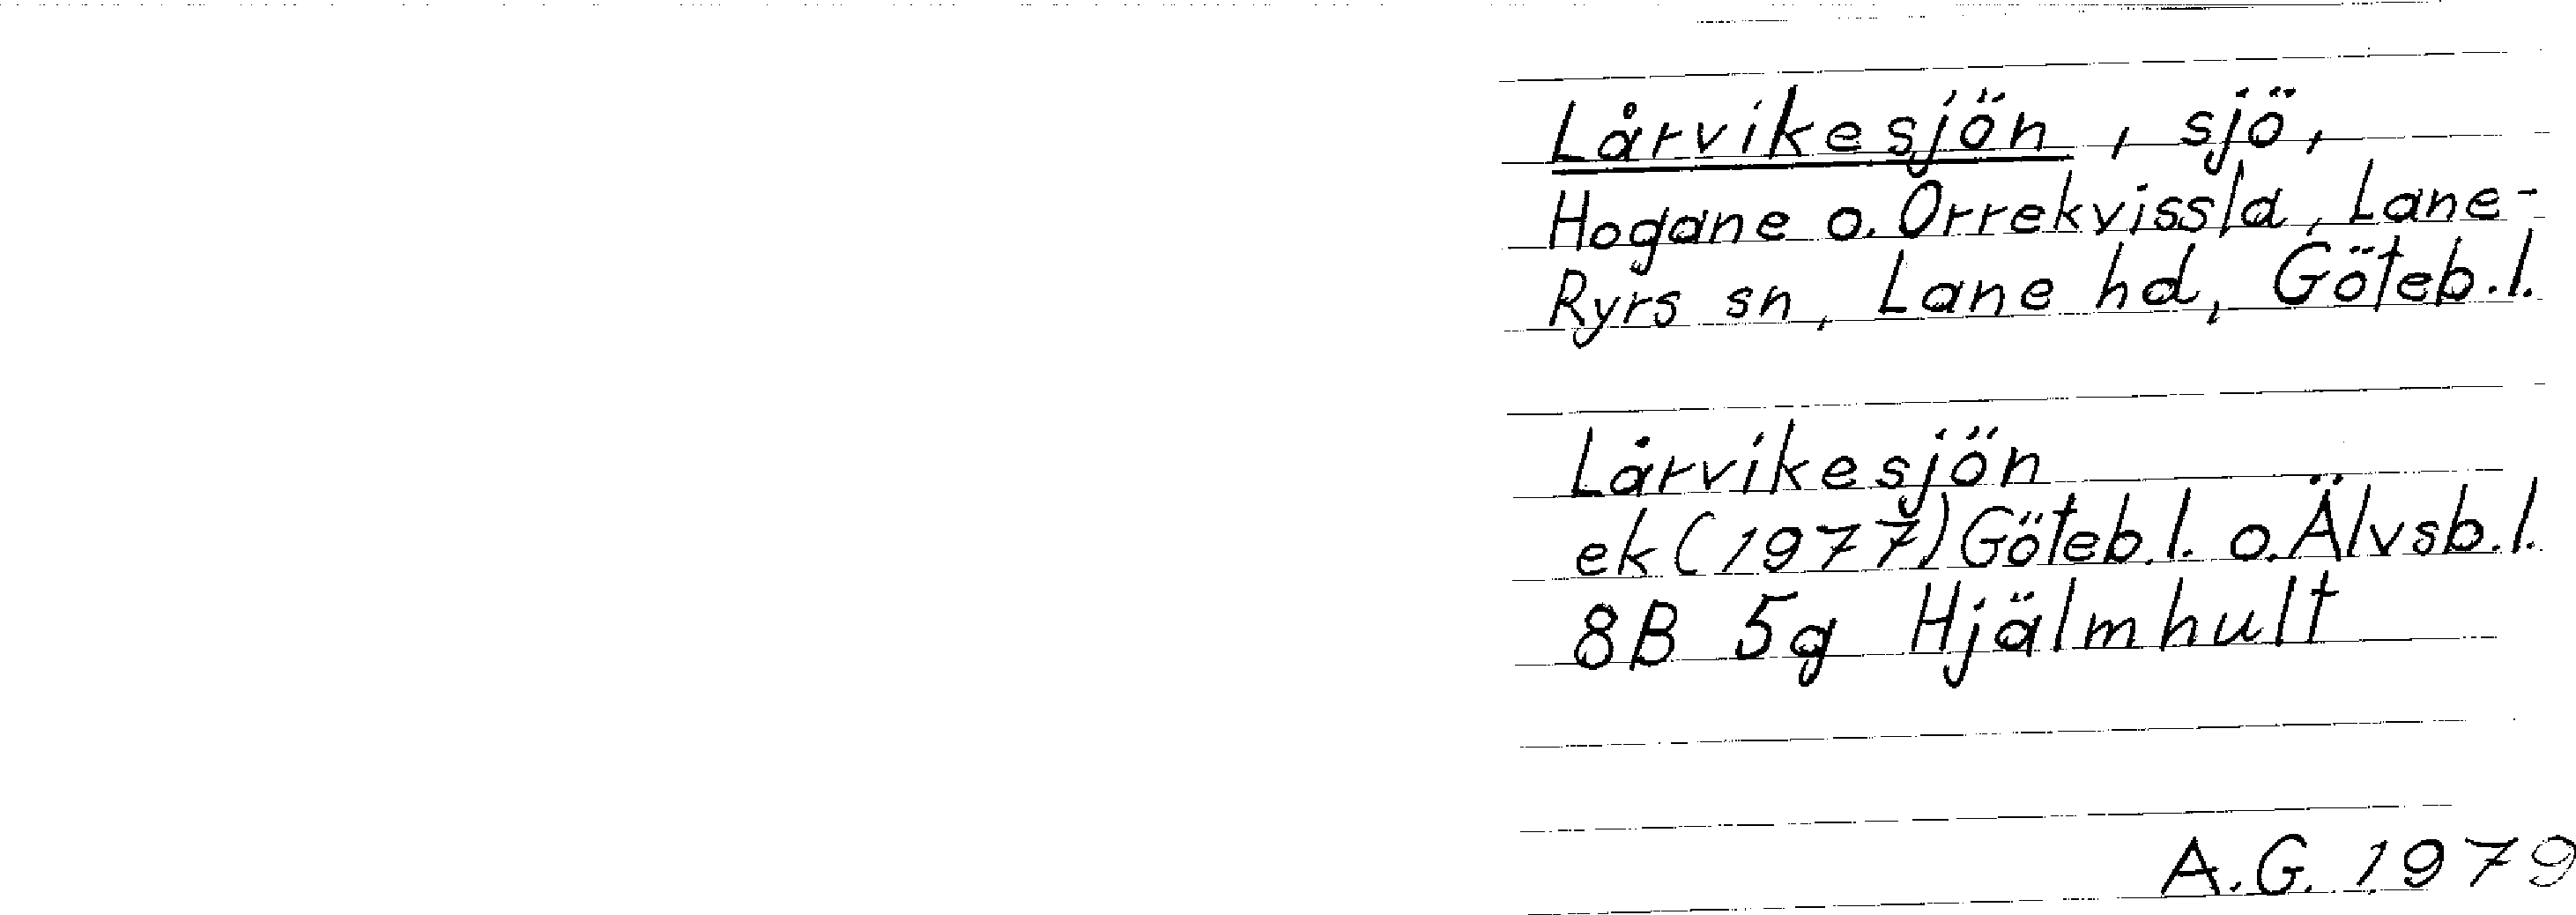 Lårvikesjön, sjö,
Hogane o. Orrekvissla, Lane-
Ryrs sn, Lane hd, Göteb.l.
Lårvikesjön
ek (1977) Göteb.l. o. Älvsb.l.
8B 5g Hjälmhult
A.G. 1979